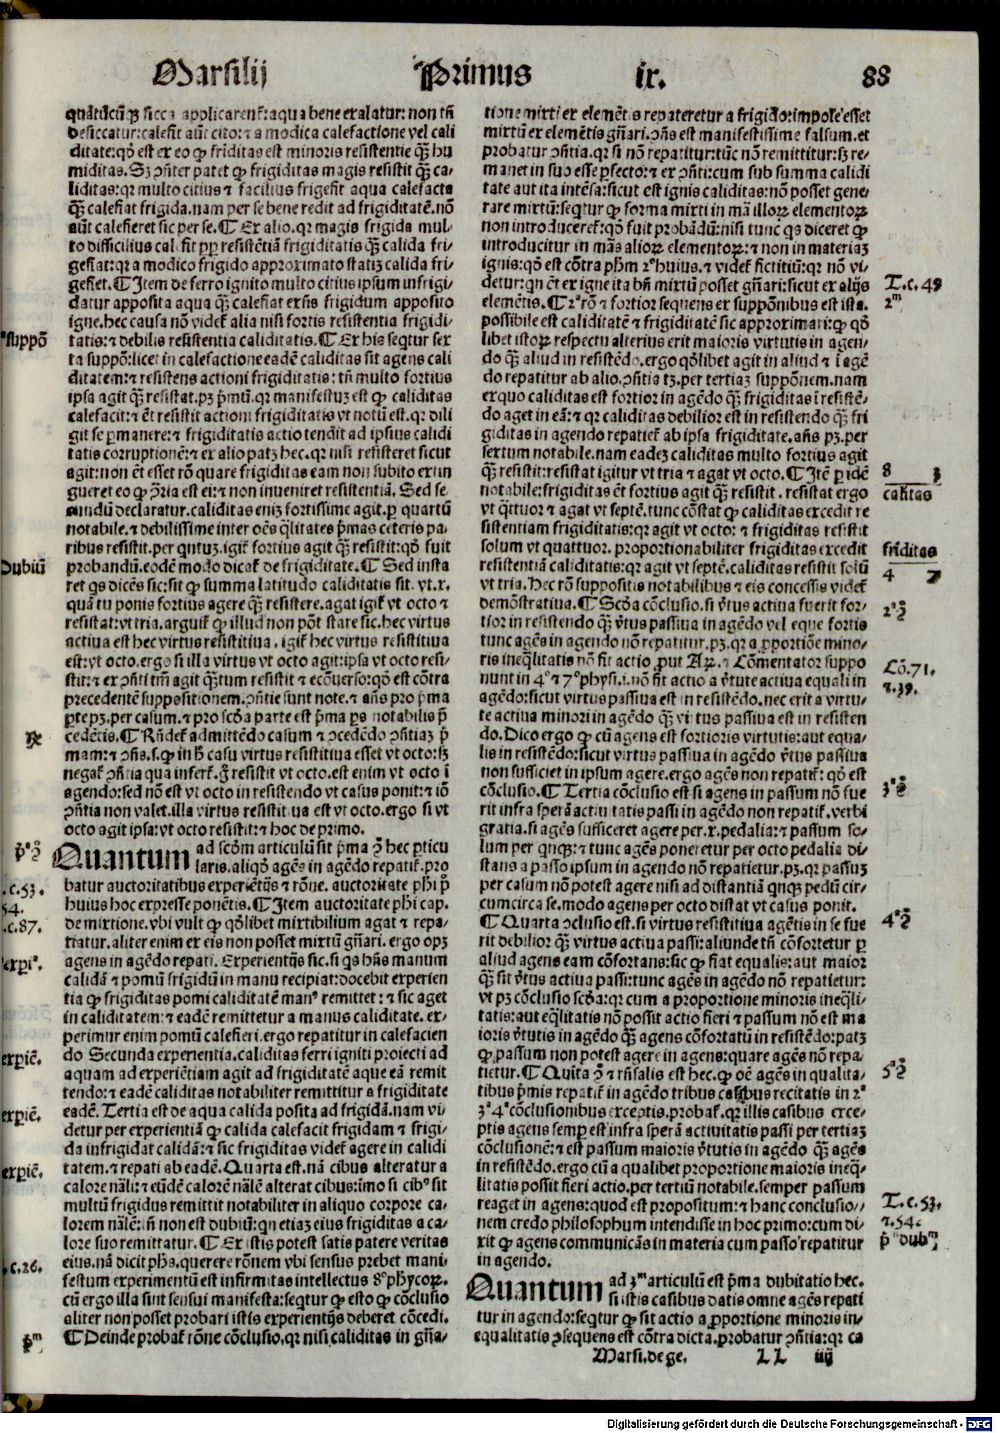 Marsilij Primus ix. 88
quātūcūqꝫ sicca applicarent̄: aqua bene exalatur: non tn̄
desiccatur: calefit aūt cito: ⁊ a modica calefactione vel cali
ditate: qd̄ est ex eo ꝙ friditas est minoris resistentie qꝫ̄ hu
miditas. Sꝫ ꝯn̄ter patet ꝙ frigiditas magis resistit qꝫ̄ ca⸗
liditas: qꝛ multo citius ⁊ facilius frigefit aqua calefacta
qꝫ̄ calefiat frigida. nam per se bene redit ad frigiditatē. nō
aūt calefieret sic per se. ¶ Ex alio. qꝛ magis frigida mul⸗
to difficilius calefit ꝓpꝛ resistētiā frigiditatis qꝫ̄ calida fri⸗
gefiat: qꝛ a modico frigido approximato statiꝫ calida fri⸗
gefiet. ¶ Item de ferro ignito multo citius ipsum infrigi⸗
datur apposita aqua qꝫ̄ calefiat exn̄s frigidum apposito
igne. hec causa nō videt̄ alia nisi fortis resistentia frigidi⸗
tatis: ⁊ debilis resistentia caliditatis. ¶ Ex his seqtur sex
ta suppō: licet in calefactione eadē caliditas sit agens cali
ditatem: ⁊ resistens actioni frigiditatis: tn̄ multo fortius
ipsa agit qꝫ̄ resistat. pꝫ pꝛimū. qꝛ manifestuꝫ est ꝙ caliditas
calefacit: ⁊ ēt resistit actioni frigiditatis vt notū est. qꝛ dili
git se permanere: ⁊ frigiditatis actio tendit ad ipsius calidi
tatis corruptionē: ⁊ ex alio patꝫ hec. qꝛ nisi resisteret sicut
agit: non ēt esset rō quare frigiditas eam non subito extin
gueret eo ꝙ ꝯ̄ria est ei: ⁊ non inueniret resistentiā. Sed se⸗
cundū declaratur. caliditas eniꝫ fortissime agit. ꝑ quartū
notabile. ⁊ debilissime inter oēs qualitates pꝛmas ceteris pa⸗
ribus resistit. per quintuꝫ. igit̄ fortius agit qꝫ̄ resistit: qd̄ fuit
probandū. eodē modo dicat̄ de frigiditate. ¶ Sed insta
ret qs dicēs sic: sit ꝙ summa latitudo caliditatis sit. vt. x.
quā tu ponis fortius agere qꝫ̄ resistere. agat igit̄ vt octo ⁊
resistat: vt tria. arguit̄ ꝙ illud non pōt stare sic. hec virtus
actiua est hec virtus resistitiua. igit̄ hec virtus resistitiua
est: vt octo. ergo si illa virtus vt octo agit: ipsa vt octo resi⸗
stit: ⁊ ex ꝯn̄ti tm̄ agit qꝫ̄tum resistit ⁊ ecōuerso: qd̄ est cōtra
precedentē suppositionem. ꝯn̄tie sunt note. ⁊ an̄s pro pꝛima
ꝑte pꝫ. per casum. ⁊ pro scd̄a parte est pꝛma ps notabilis pꝛe
cedētis. ¶ Rn̄det̄ admittēdo casum ⁊ ꝯcedēdo ꝯn̄tiaꝫ pꝛi
mam: ⁊ ꝯn̄s. s. ꝙ in hꝰ casu virtus resistitiua esset vt octo: sꝫ
negat̄ ꝯn̄tia qua infert̄. g̊ resistit vt octo. est enim vt octo ī
agendo: sed nō est vt octo in resistendo vt casus ponit: ⁊ iō
ꝯn̄tia non valet. illa virtus resistitiua est vt octo. ergo si vt
octo agit ipsa: vt octo resistit: ⁊ hoc de primo.
Quantum ad scd̄m articulū sit pꝛima ꝯ̄ hec pticu
laris. aliqd̄ agēs in agēdo repatit̄. pro
batur auctoritatibus experiētijs ⁊ rōne. auctoritate phi pꝛi
huius hoc expresse ponētis. ¶ Item auctoritate phi cap.
de mixtione. vbi vult ꝙ qd̄libet mixtibilium agat ⁊ repa⸗
tiatur. aliter enim ex eis non posset mixtū gn̄ari. ergo opꝫ
agens in agēdo repati. Experientijs sic. si qs hn̄s manum
calidā ⁊ pomū frigidū in manu recipiat: docebit experien
tia ꝙ frigiditas pomi caliditatē manꝰ remittet: ⁊ sic aget
in caliditatem: ⁊ eadē remittetur a manus caliditate. ex⸗
perimur enim pomū calefieri. ergo repatitur in calefacien
do Secunda experientia. caliditas ferri igniti proiecti ad
aquam ad experiētiam agit ad frigiditatē aque eā remit
tendo: ⁊ eadē caliditas notabiliter remittitur a frigiditate
eadē. Tertia est de aqua calida posita ad frigidā. nam vi⸗
detur per experientiā ꝙ calida calefacit frigidam ⁊ frigi⸗
da infrigidat calidā: ⁊ sic frigiditas videt̄ agere in calidi
tatem. ⁊ repati ab eadē. Quarta est. nā cibus alteratur a
calore nāli: ⁊ eūdē calorē nālē alterat cibus: imo si cibꝰ sit
multū frigidus remittit notabiliter in aliquo corpore ca⸗
lorem nālē: n̄ non est dubiū: qn etiaꝫ eius frigiditas a ca⸗
lore suo remittatur. ¶ Ex istis potest satis patere veritas
eius. nā dicit phs. querere rōnem vbi sensus prebet mani⸗
festum experimentū est infirmitas intellectus 8º phycoꝝ.
cū ergo illa sint sensui manifesta: seqtur ꝙ esto ꝙ cōclusio
aliter non posset probari istis experientijs deberet cōcedi.
¶ Deinde probat̄ rōne cōclusio. qꝛ nisi caliditas in gn̄a⸗
tione mixti ex elemētis repateretur a frigido: impōle esset
mixtū ex elemētis gn̄ari. ꝯn̄s est manifestissime falsum. et
probatur ꝯn̄tia. qꝛ si nō repatitur: tūc nō remittitur: sꝫ re⸗
manet in suo esse ꝑfecto: ⁊ ex ꝯn̄ti: cum sub summa calidi
tate aut ita intēsa: sicut est ignis caliditas: nō posset gene⸗
rare mixtū: seqtur ꝙ forma mixti in mā illoꝝ elementoꝝ
non introduceret̄: qd̄ fuit probādū: nisi tunc qs diceret ꝙ
introducitur in mās alioꝝ elementoꝝ: ⁊ non in materiaꝫ
ignis: qd̄ est cōtra phm 2º huius. ⁊ videt̄ fictitiū: qꝛ nō vi⸗
detur: qn ēt ex igne ita bn̄ mixtū posset gn̄ari: sicut ex alijs
elemētis. ¶ 2ª rō ⁊ fortior sequens ex suppōnibus est ista.
possibile est caliditatē ⁊ frigiditatē sic approximari: ꝙ qd̄
libet istoꝝ respectu alterius erit maioris virtutis in agen⸗
do qꝫ̄ aliud in resistēdo. ergo qd̄libet agit in aliud ⁊ ī agē
do repatitur ab alio. ꝯn̄tia tꝫ. per tertiaꝫ suppōnem. nam
ex quo caliditas est fortior in agēdo qꝫ̄ frigiditas ī resistē⸗
do aget in eā: ⁊ qꝛ caliditas debilior est in resistendo qꝫ̄ fri
giditas in agendo repatiet̄ ab ipsa frigiditate. an̄s pꝫ. per
sextum notabile. nam eadeꝫ caliditas multo fortius agit
qꝫ̄ resistit: resistat igitur vt tria ⁊ agat vt octo. ¶ Itē ꝑ idē
notabile: frigiditas ēt fortius agit qꝫ̄ resistit. resistat ergo
vt qttuor ⁊ agat vt septē. tunc cōstat ꝙ caliditas excedit re
sistentiam frigiditatis: qꝛ agit vt octo: ⁊ frigiditas resistit
solum vt quattuor. proportionabiliter frigiditas excedit
resistentiā caliditatis: qꝛ agit vt septē. caliditas resistit solū
vt tria. Hec rō suppositis notabilibus ⁊ eis concessis videt̄
demōstratiua. ¶ Scd̄a cōclusio. si v̄tus actiua fuerit for⸗
tior in resistendo qꝫ̄ v̄tus passiua in agēdo vel eque fortis
tunc agēs in agendo nō repatitur. pꝫ. qꝛ a ꝓportiōe mino⸗
ris ineq̄litatis nō fit actio prout Aꝝ. ⁊ Cōmentator suppo
nunt in 4º ⁊ 7º physi. i. nō fit actio a v̄tute actiua equali in
agēdo: sicut virtus passiua est in resistēdo. nec erit a virtu⸗
te actiua minori in agēdo qꝫ̄ virtus passiua est in resisten
do. Dico ergo ꝙ cū agens est fortioris virtutis: aut equa⸗
lis in resistēdo: sicut virtus passiua in agēdo v̄tus passiua
non sufficiet in ipsum agere. ergo agēs non repatit̄: qd̄ est
cōclusio. ¶ Tertia cōclusio est si agens in passum nō fue
rit infra sperā actiuitatis passi in agēdo non repatit̄. verbi
gratia. si agēs sufficeret agere per. x. pedalia: ⁊ passum so⸗
lum per qnqꝫ: ⁊ tunc agēs poneretur per octo pedalia di⸗
stans a passo ipsum in agendo nō repatietur. pꝫ. qꝛ passuꝫ
per casum nō potest agere nisi ad distantiā qnqꝫ pedū cir⸗
cumcirca se. modo agens per octo distat vt casus ponit.
¶ Quarta ꝯclusio est. si virtus resistitiua agētis in se fue
rit debilior qꝫ̄ virtus actiua passi: aliunde tn̄ cōfortetur ꝑ
aliud agens eam cōfortans: sic ꝙ fiat equalis: aut maior
qꝫ̄ sit v̄tus actiua passi: tunc agēs in agēdo nō repatietur:
vt pꝫ cōclusio scd̄a: qꝛ cum a proportione minoris ineq̄li⸗
tatis: aut eq̄litatis nō possit actio fieri ⁊ passum nō est ma
ioris v̄tutis in agēdo qꝫ̄ agens cōfortatū in resistēdo: patꝫ
ꝙ passum non potest agere in agens: quare agēs nō repa⸗
tietur. ¶ Quīta ꝯ̄ ⁊ rn̄salis est hec. ꝙ oē agēs in qualita⸗
tibus pꝛimis repatit̄ in agēdo tribus casibus recitatis in 2ª
3ª 4ª cōclusionibus exceptis. probat̄. qꝛ illis casibus exce⸗
ptis agens semper est infra sperā actiuitatis passi per tertiaꝫ
cōclusionē: ⁊ est passum maioris v̄tutis in agēdo qꝫ̄ agēs
in resistēdo. ergo cū a qualibet proportione maioris ineq̄⸗
litatis possit fieri actio. per tertiū notabile. semper passum
reaget in agens: quod est propositum: ⁊ hanc conclusio⸗
nem credo philosophum intendisse in hoc primo: cum di⸗
xit ꝙ agens communicās in materia cum passo repatitur
in agendo.
Quantum ad 3ᵐ articulū est pꝛima dubitatio hec.
si istis casibus datis omne agēs repati
tur in agendo: seqtur ꝙ sit actio a proportione minoris in⸗
equalitatis ꝯsequens est cōtra dicta. probatur ꝯn̄tia: qꝛ ca
Marsi. de ge. LL iiij
suppō
Dubiū
℞
pꝰꝯ̄
.c.53.
54.
.c.87.
expīª.
expiē.
expiē.
expiē.
.c.26.
pꝰᵐ
T.c.49
2ᵐ
8 3
calitas
friditas
4 7
2ªꝯ̄
Cō.71.
⁊.39.
3ªꝯ̄
4ªꝯ̄
5ªꝯ̄
T.c.53.
⁊.54.
pꝰ dubᵐ
Digitalisierung gefördert durch die Deutsche Forschungsgemeinschaft - DFG